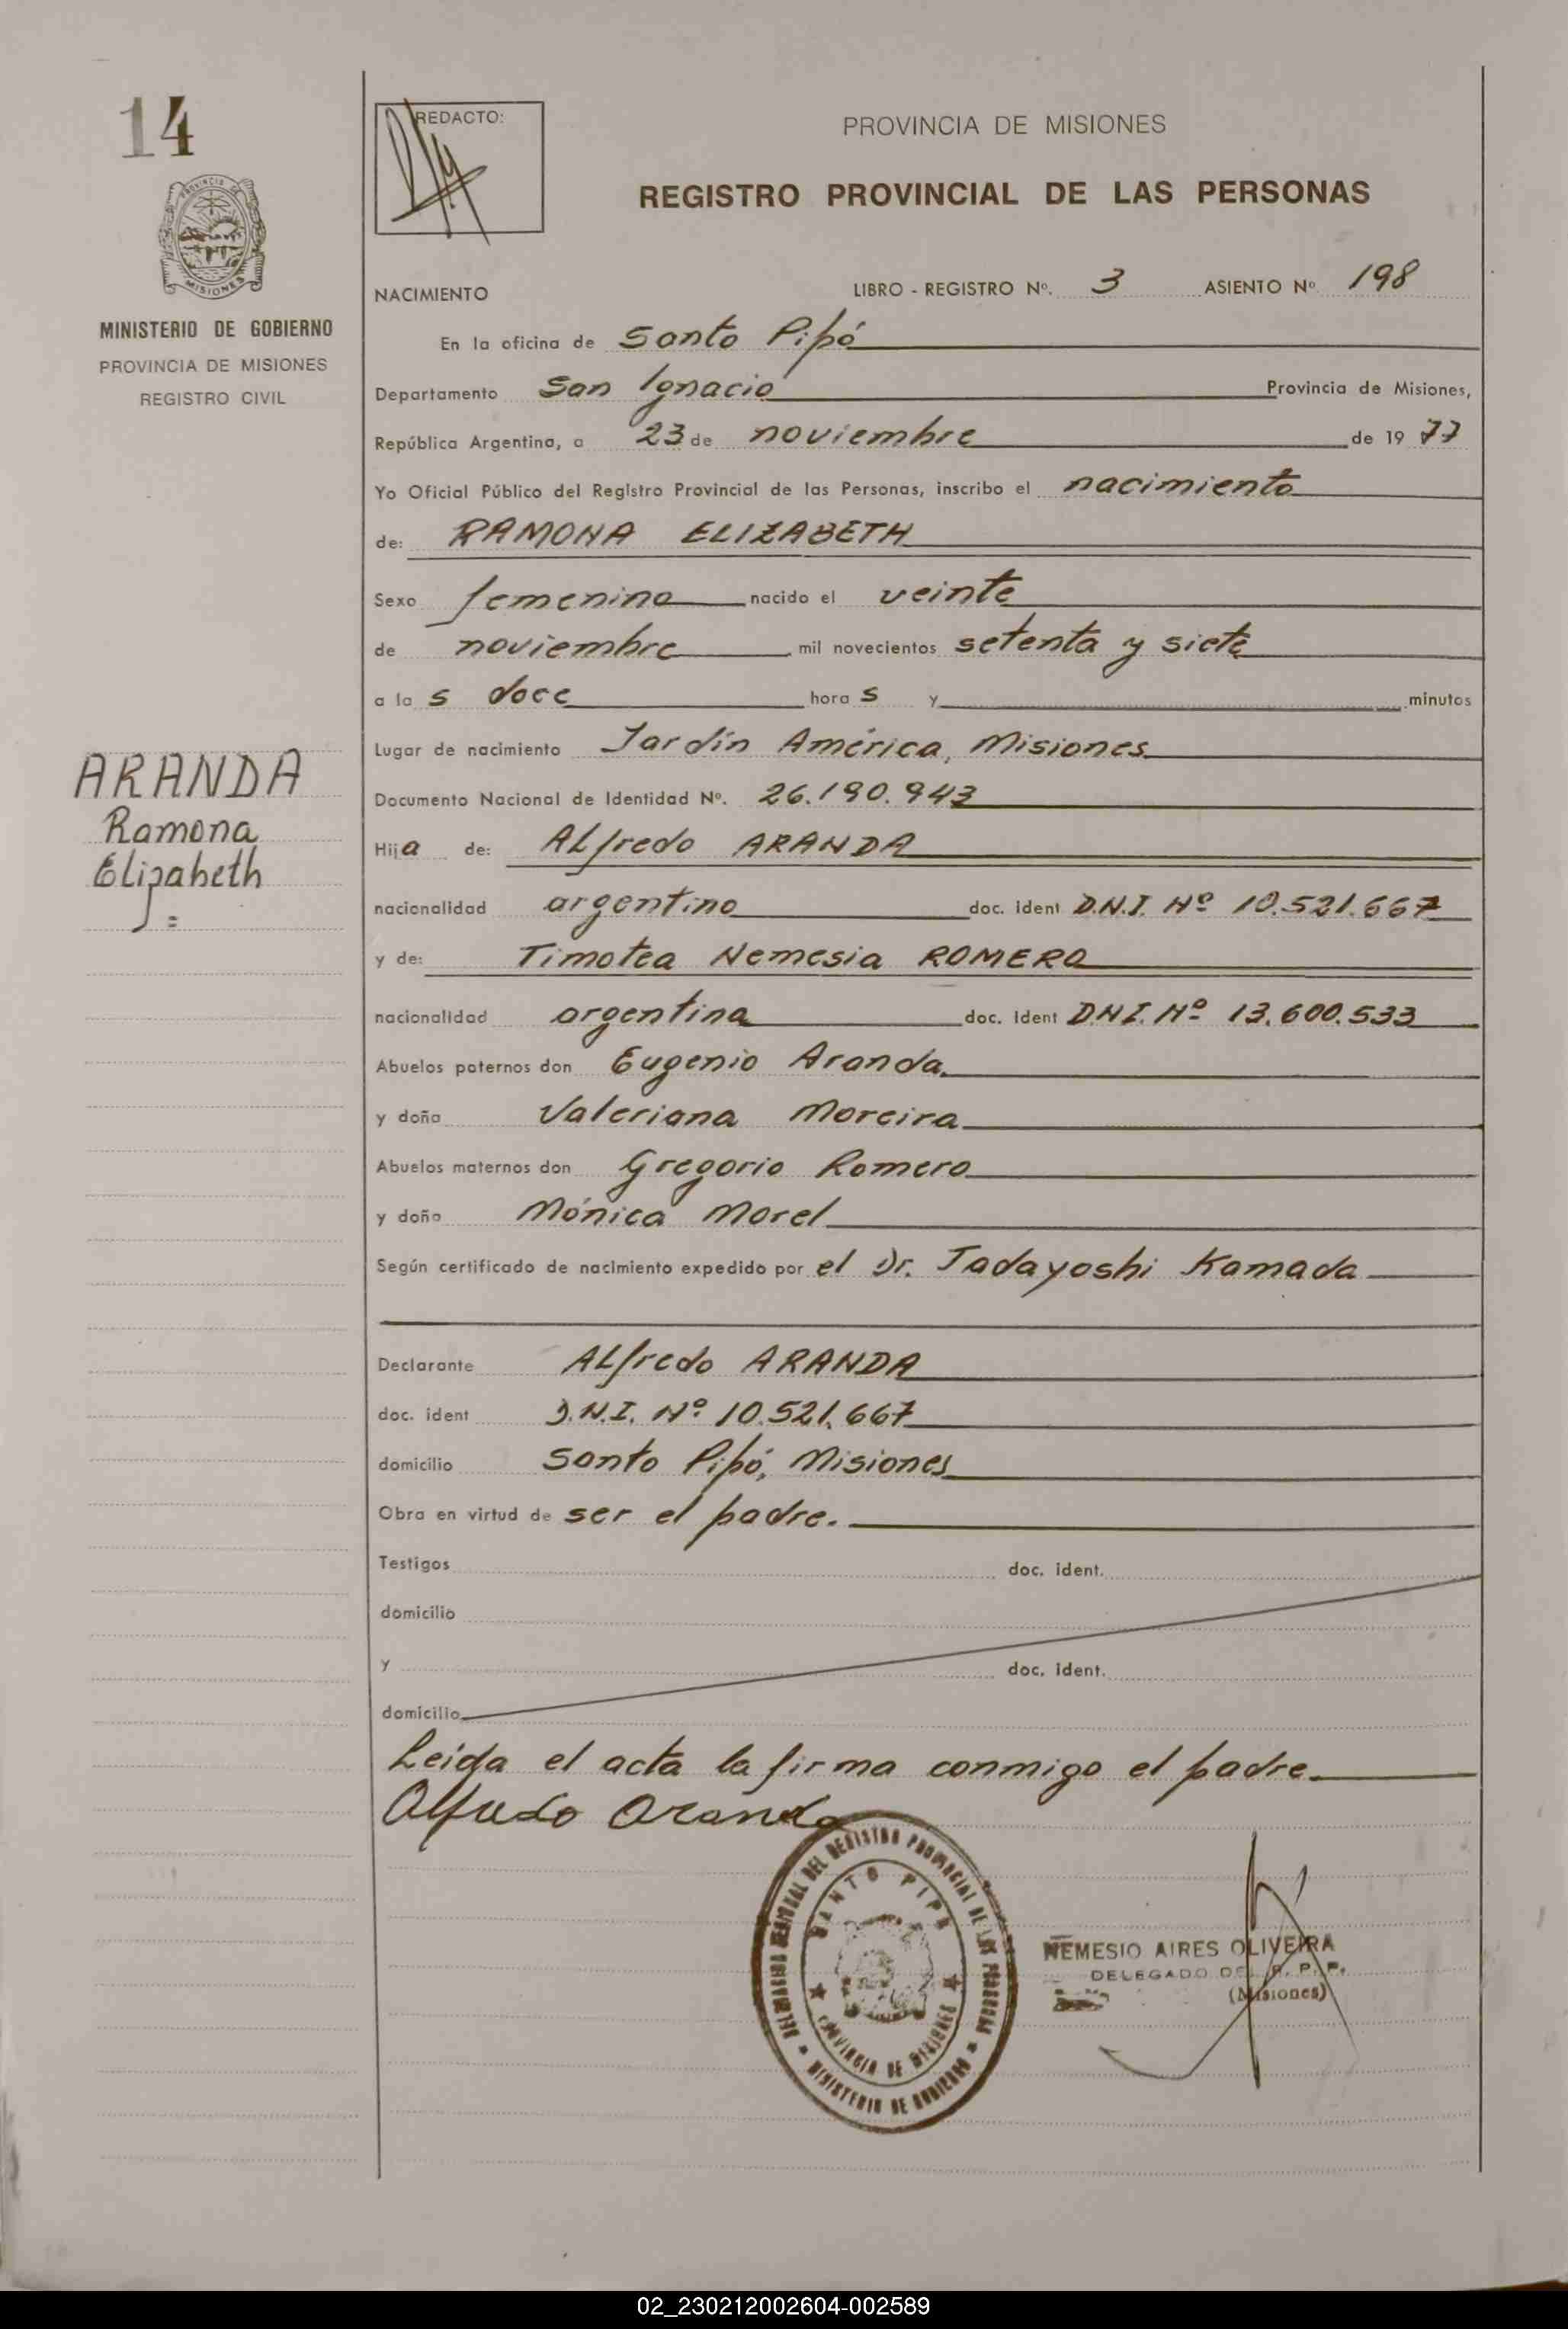 14
PROVINCIA DE
MISIONES
MINISTERIO DE GOBIERNO
PROVINCIA DE MISIONES
REGISTRO CIVIL
ARANDA
Ramona
Elizabeth
REDACTO:
PROVINCIA DE MISIONES
REGISTRO PROVINCIAL DE LAS PERSONAS
NACIMIENTO LIBRO - REGISTRO Nº. 3 ASIENTO Nº. 198
En la oficina de Santo Pipó
Departamento San Ignacio Provincia de Misiones,
República Argentina, a 23 de noviembre de 19 77
Yo Oficial Público del Registro Provincial de las Personas, inscribo el nacimiento
de: RAMONA ELIZABETH
Sexo femenino nacido el veinte
de noviembre mil novecientos setenta y siete
a la s doce hora s y minutos
Lugar de nacimiento Jardín América, Misiones
Documento Nacional de Identidad Nº. 26.190.943
Hija de: ALfredo ARANDA
nacionalidad argentino doc. ident D.N.I. Nº 10.521.667
y de: Timotea Nemesia ROMERO
nacionalidad argentina doc. ident D.N.I. Nº 13.600.533
Abuelos paternos don Eugenio Aranda
y doña Valeriana Moreira
Abuelos maternos don Gregorio Romero
y doña Mónica Morel
Según certificado de nacimiento expedido por el Dr. Tadayoshi Kamada
Declarante ALfredo ARANDA
doc. ident D.N.I. Nº 10.521.667
domicilio Santo Pipó, Misiones
Obra en virtud de ser el padre.
Testigos doc. ident.
domicilio
y doc. ident.
domicilio
Leída el acta la firma conmigo el padre
Alfredo Aranda
DEL REGISTRO PROVINCIAL DE LAS PERSONAS
SANTO PIPÓ
PROVINCIA DE MISIONES
MINISTERIO DE GOBIERNO
NEMESIO AIRES OLIVEIRA
DELEGADO DEL R. P. P.
(Misiones)
02_230212002604-002589